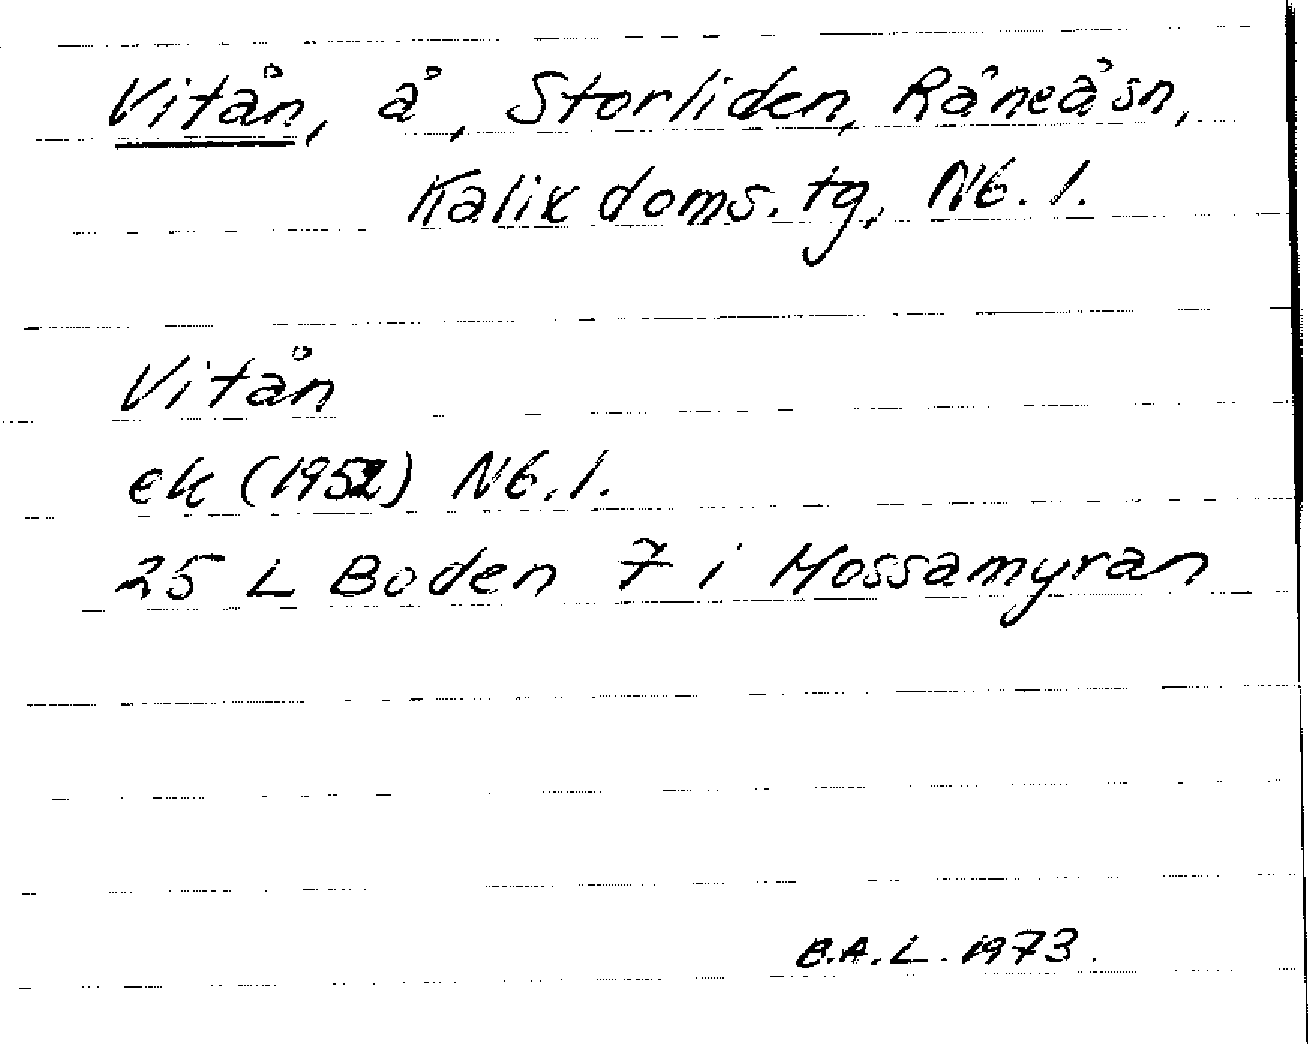 Vitån, å, Storliden, Råneåsn,
Kalix doms. tg, Nb. l.
Vitån
ek (1952) Nb. l.
25 L Boden 7 i Mossamyran
B.A.L. 1973.